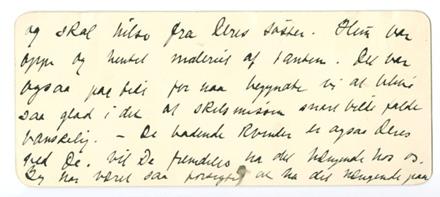 og skal hilse fra Deres søster. Hun var
oppe og hentet maleriet af tanten. Det var
ogsaa paa tide for naa begyndte vi at bli
saa glad i det at skilsmissen snart vilde falde
vanskelig. – De badende Kvinder er ogsaa Deres
ved De. Vil De fremdeles ha det hængende hos os.
Jeg har været saa forsigtig at ha det hængende paa